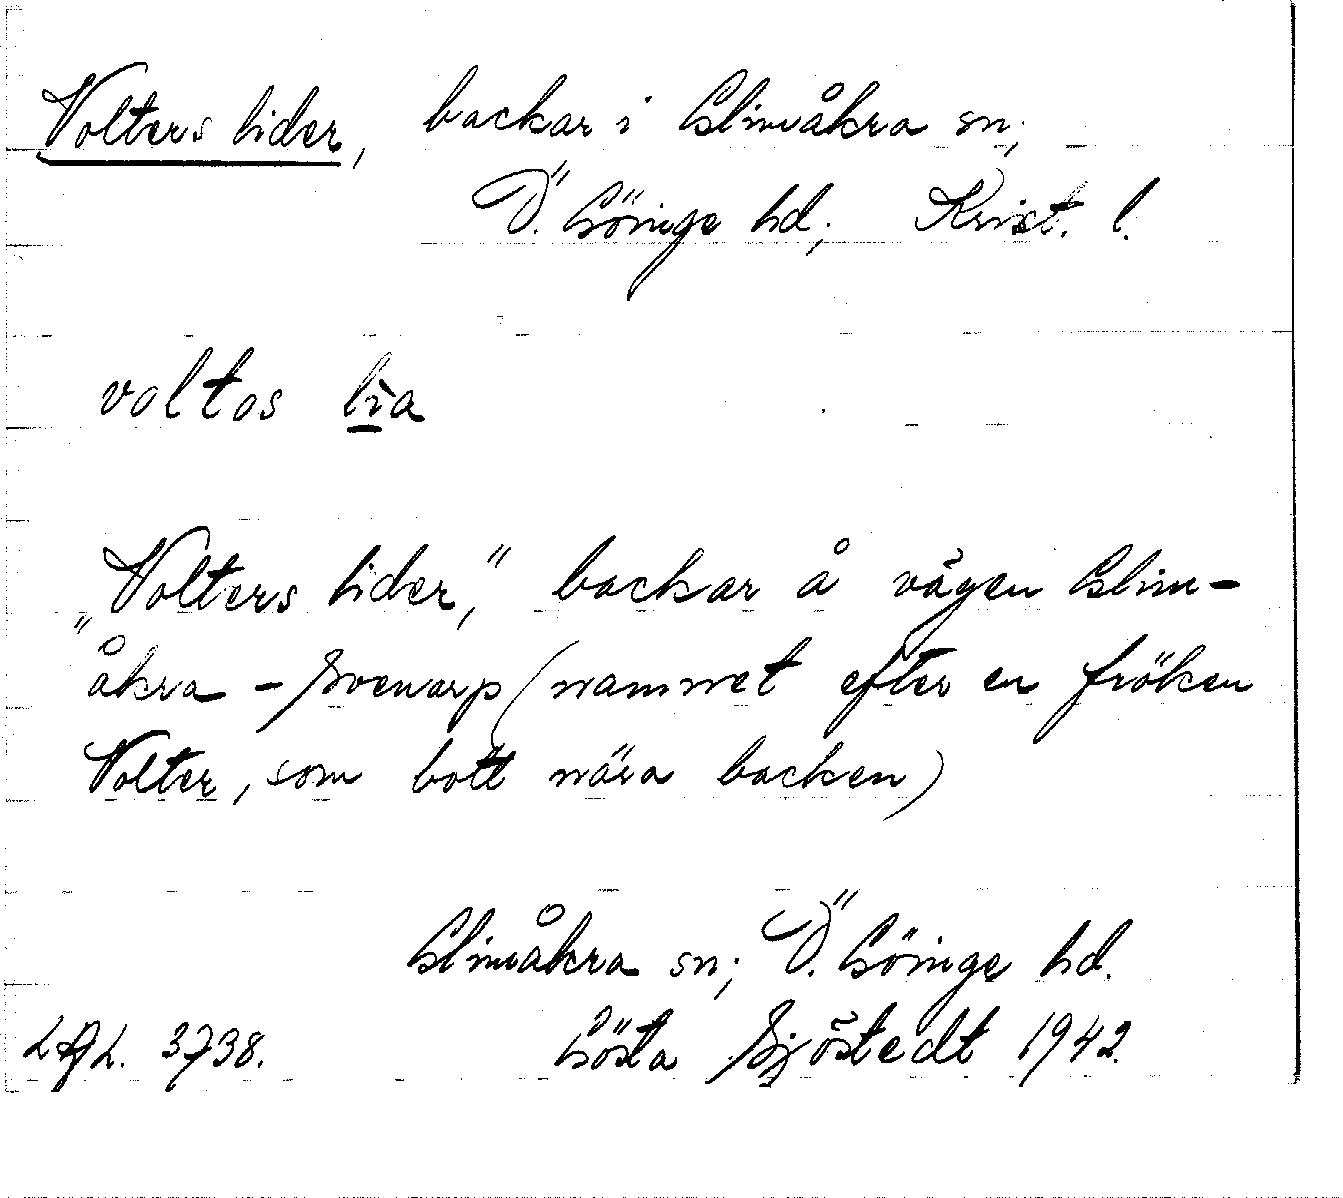 Volters lider, backar i Glimåkra sn;
Ö. Göinge hd; Krist. l.
voltos lia
"Volters lider," backar å vägen Glim-
åkra - Svenarp (namnet efter en fröken
Volter, som bott nära backen)
Glimåkra sn; Ö. Göinge hd.
LAL. 3738. Gösta Sjöstedt 1942.